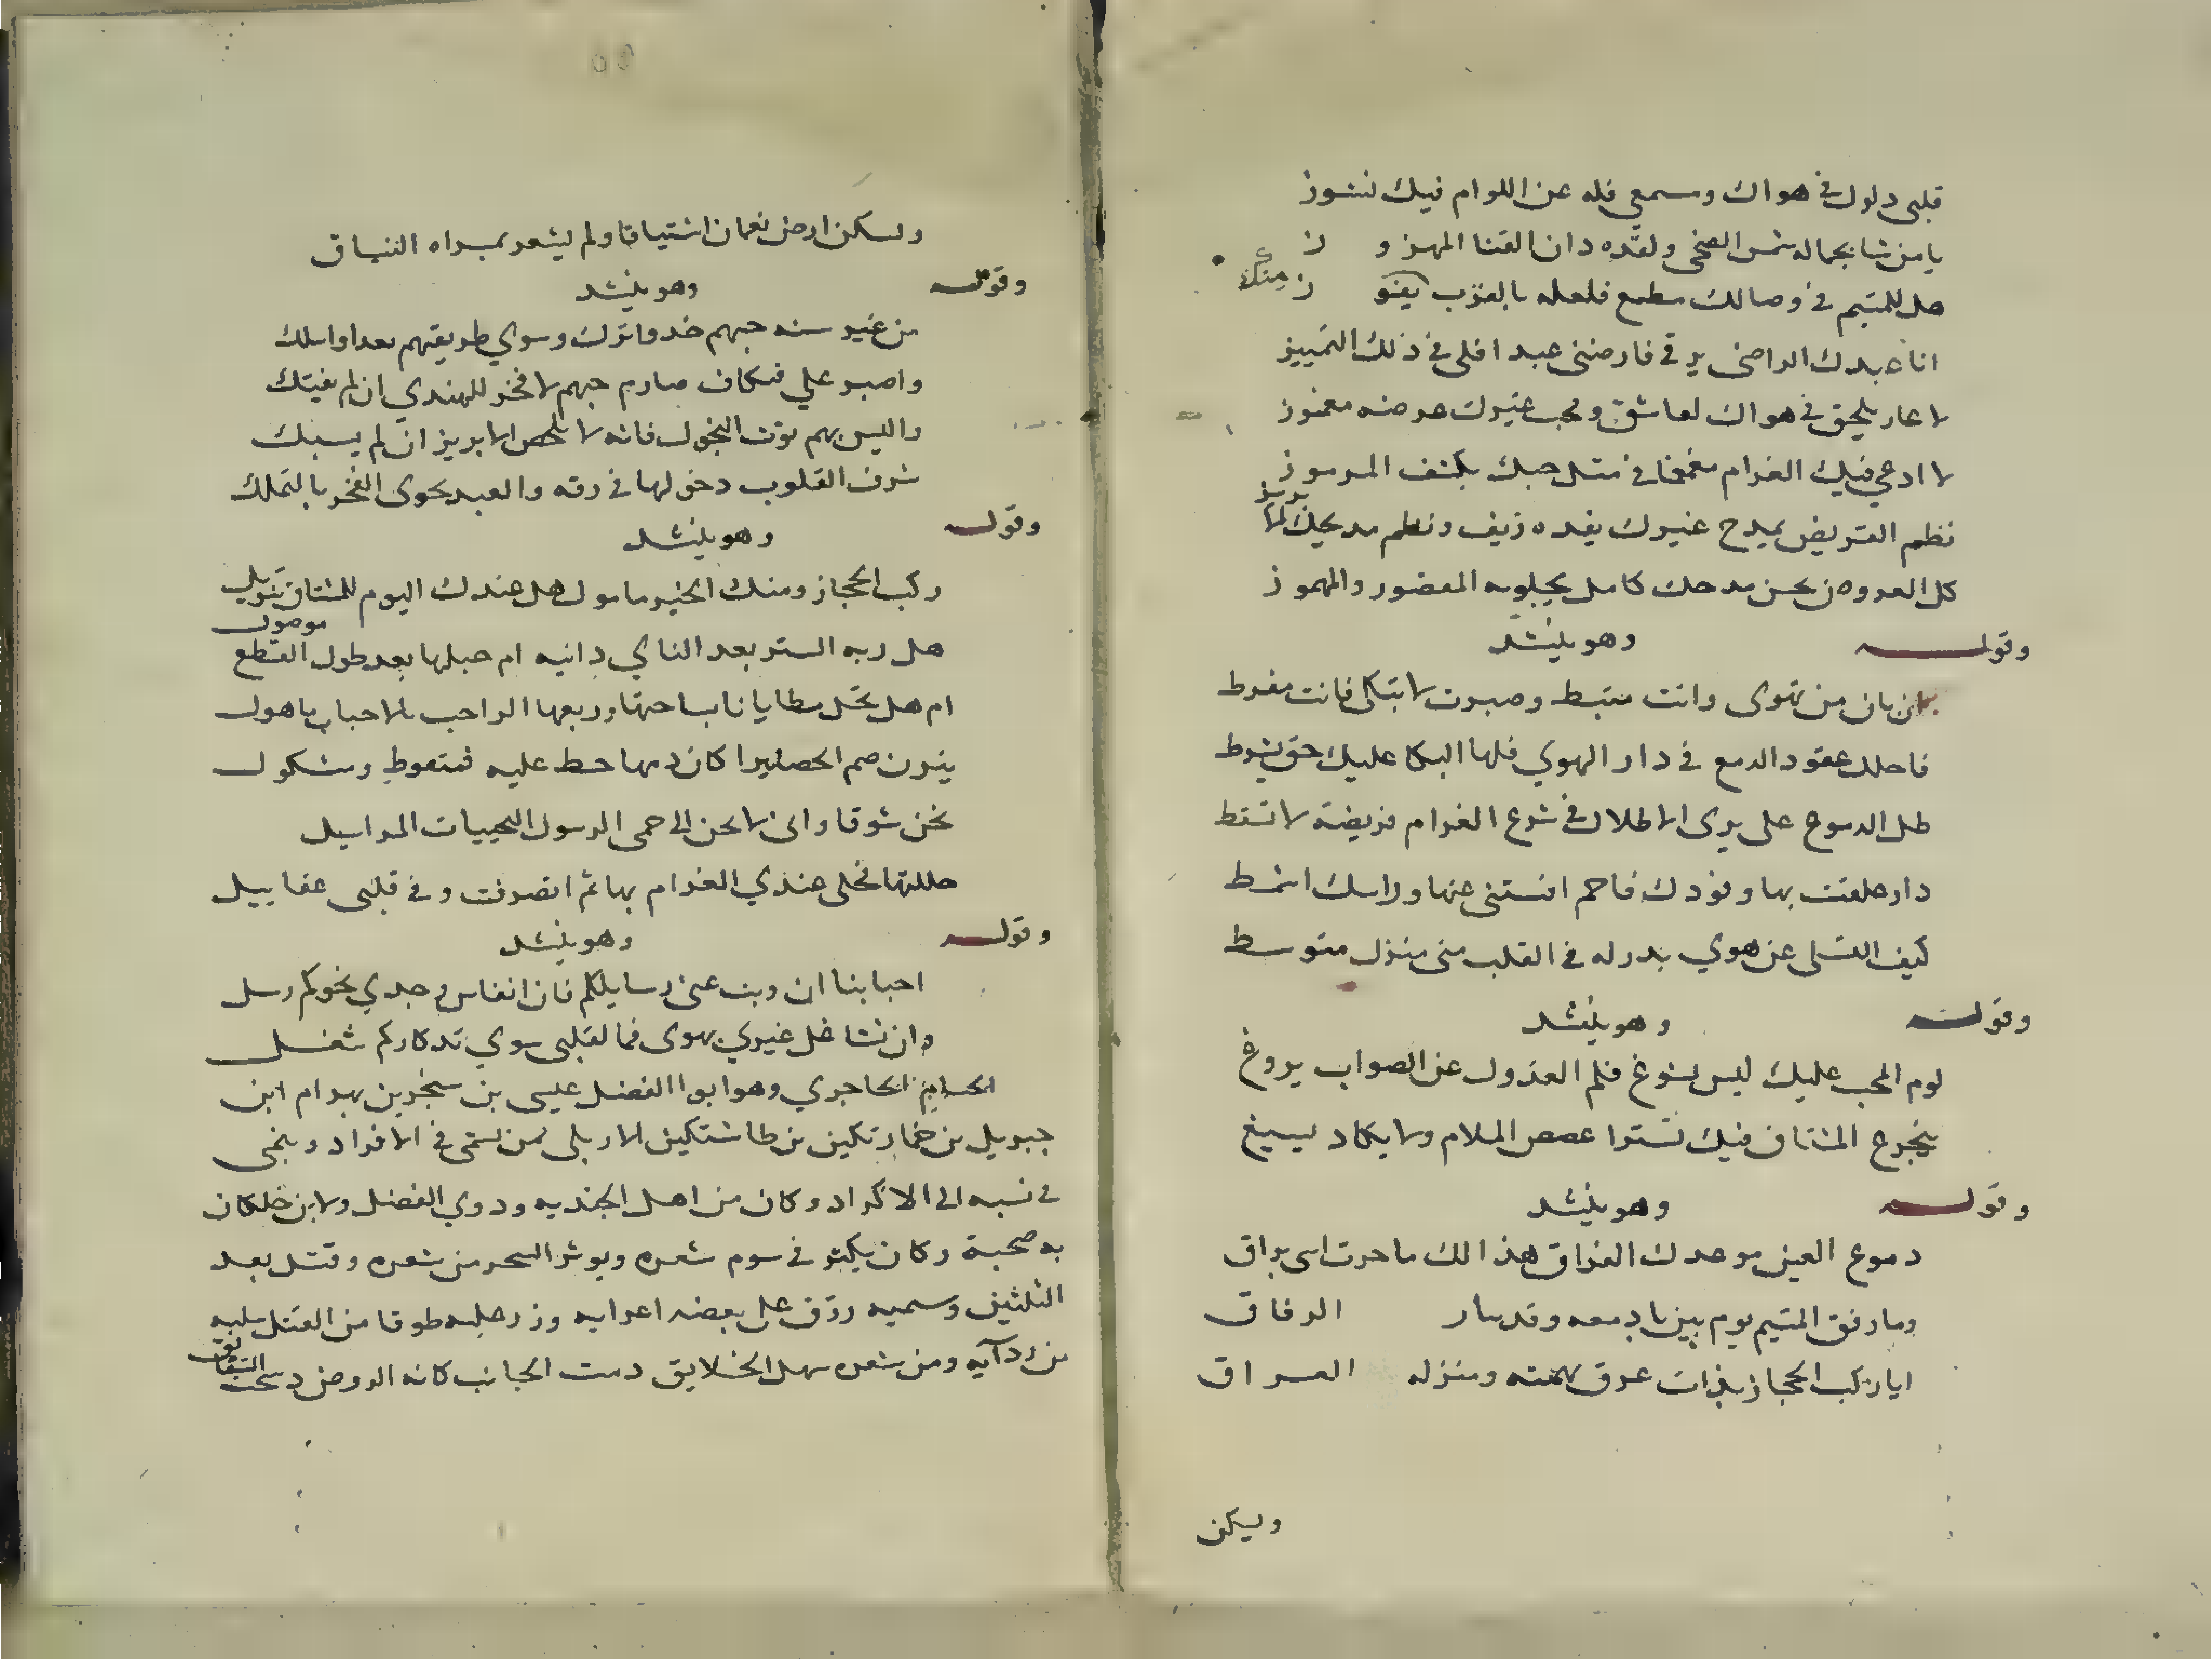 قلبى دلول فى هواك وسمعي فله عن اللوام فيك نشوز
يا من شا بجماله شمس الضحى ولقده دان القنا المهزوز
هل للمتيم فى وصالك مطمع فلعله بالقرب منك يفوز
انا عبدك الراضى برقى فارضنى عبدا فلى فى ذلك التمييز
لا عار يلحق فى هواك لعاشق ومحب غيرك عرضه مغموز
لا ادعي فيك الغرام مغمغا فى مثل حبك يكشف المرموز
نظم القريض بمدح غيرك يغده زيف ونظم مديحك
كل العروض بحسن مدحك كامل يجلو به المقصور والمهموز
وقوله وهو ينشد
ان بان من تهوى وانت مثبط وصبرت لا تبكى فانت مفرط
فاحلل عقود الدمع فى دار الهوي فلها البكا عليك حق يشرط
طل الدموع على ثرى الاطلال فى شرع الغرام فريضة لا تسقط
دار علقت بها وفودك فاحم افتنثنى عنها وراسك اشمط
كيف التسلى عن هوي بدر له فى القلب منى منزل متوسط
وقوله وهو ينشد
لوم المحب عليك ليس يسوغ فلم العذول عن الصواب يروغ
يتجرع المشتاق فيك تسترا غصص الملام ولا يكاد يسيغ
وقوله وهو ينشد
دموع العين موعدك الفراق هذا لك ما حرت اسى يراق
وما رفق المتيم يوم بين بادمعه وقد سار الرفاق
ايا ركب الحجاز بذات عرق تهمته ومنزله العراق
وليكن
ولسكن ارض نعمان اشتياقا ولم يشعر بمسراه النياق
وقوله وهو ينشد
من غير سنه حبهم خذ واترك وسوي طريقتهم بعدا واسلك
واصبر علي فتكات صارم حبهم لا فخر للهندي ان لم يفتك
والبس بهم ثوب النحول فانه لا يخلص الابريز ان لم يسبك
شرف القلوب دخولها فى رقه والعبد يحوى الفخر بالتملك
وقوله وهو ينشد
ركب الحجاز ومنك الخير مامول هل عندك اليوم للمشتاق تنويل
هل ربه الستر بعد الناي دانيه ام حبلها بعد طول القطع موصول
ام هل تحل مطايانا بساحتها وربعها الراحب بالاحباب ماهول
يثرن صم الحصا كان مها حط عليه فمنقوط ومشكول
نحن شوقا وانى لا نحن الى حمى الرسول النجيبات المراسيل
حللتها فحلى عندي الغرام بها ثم انصرفت وفى قلبى عقابيل
وقوله وهو ينشد
احبابنا ان ونت عنى رسايلكم فان انفاس وجدي نحوكم رسل
وان تشاغل غيري بهوى فما لقلبى سوي تدكاركم شغل
الحسام الحاجري وهو ابوا الفضل عيسى بن سنجر بن بهرام ابن
جبريل بن خمارتكين بن طاشتكين الاربلى ممن يسمى فى الافراد وينمى
فى نسبه الى الاكراد وكان من اهل الجنديه وذوي الفضل ولابن خلكان
به صحبة وكان يكثر فى سوم شعره ويوثر السحر من شعره وقتل بعد
الثلثين وسميه رزق على بعضه اعرابه وزر عليه طوقا من القتل سلبه
من رآيه ومن شعره سهل الخلايق دمث الجانب كانه الروض